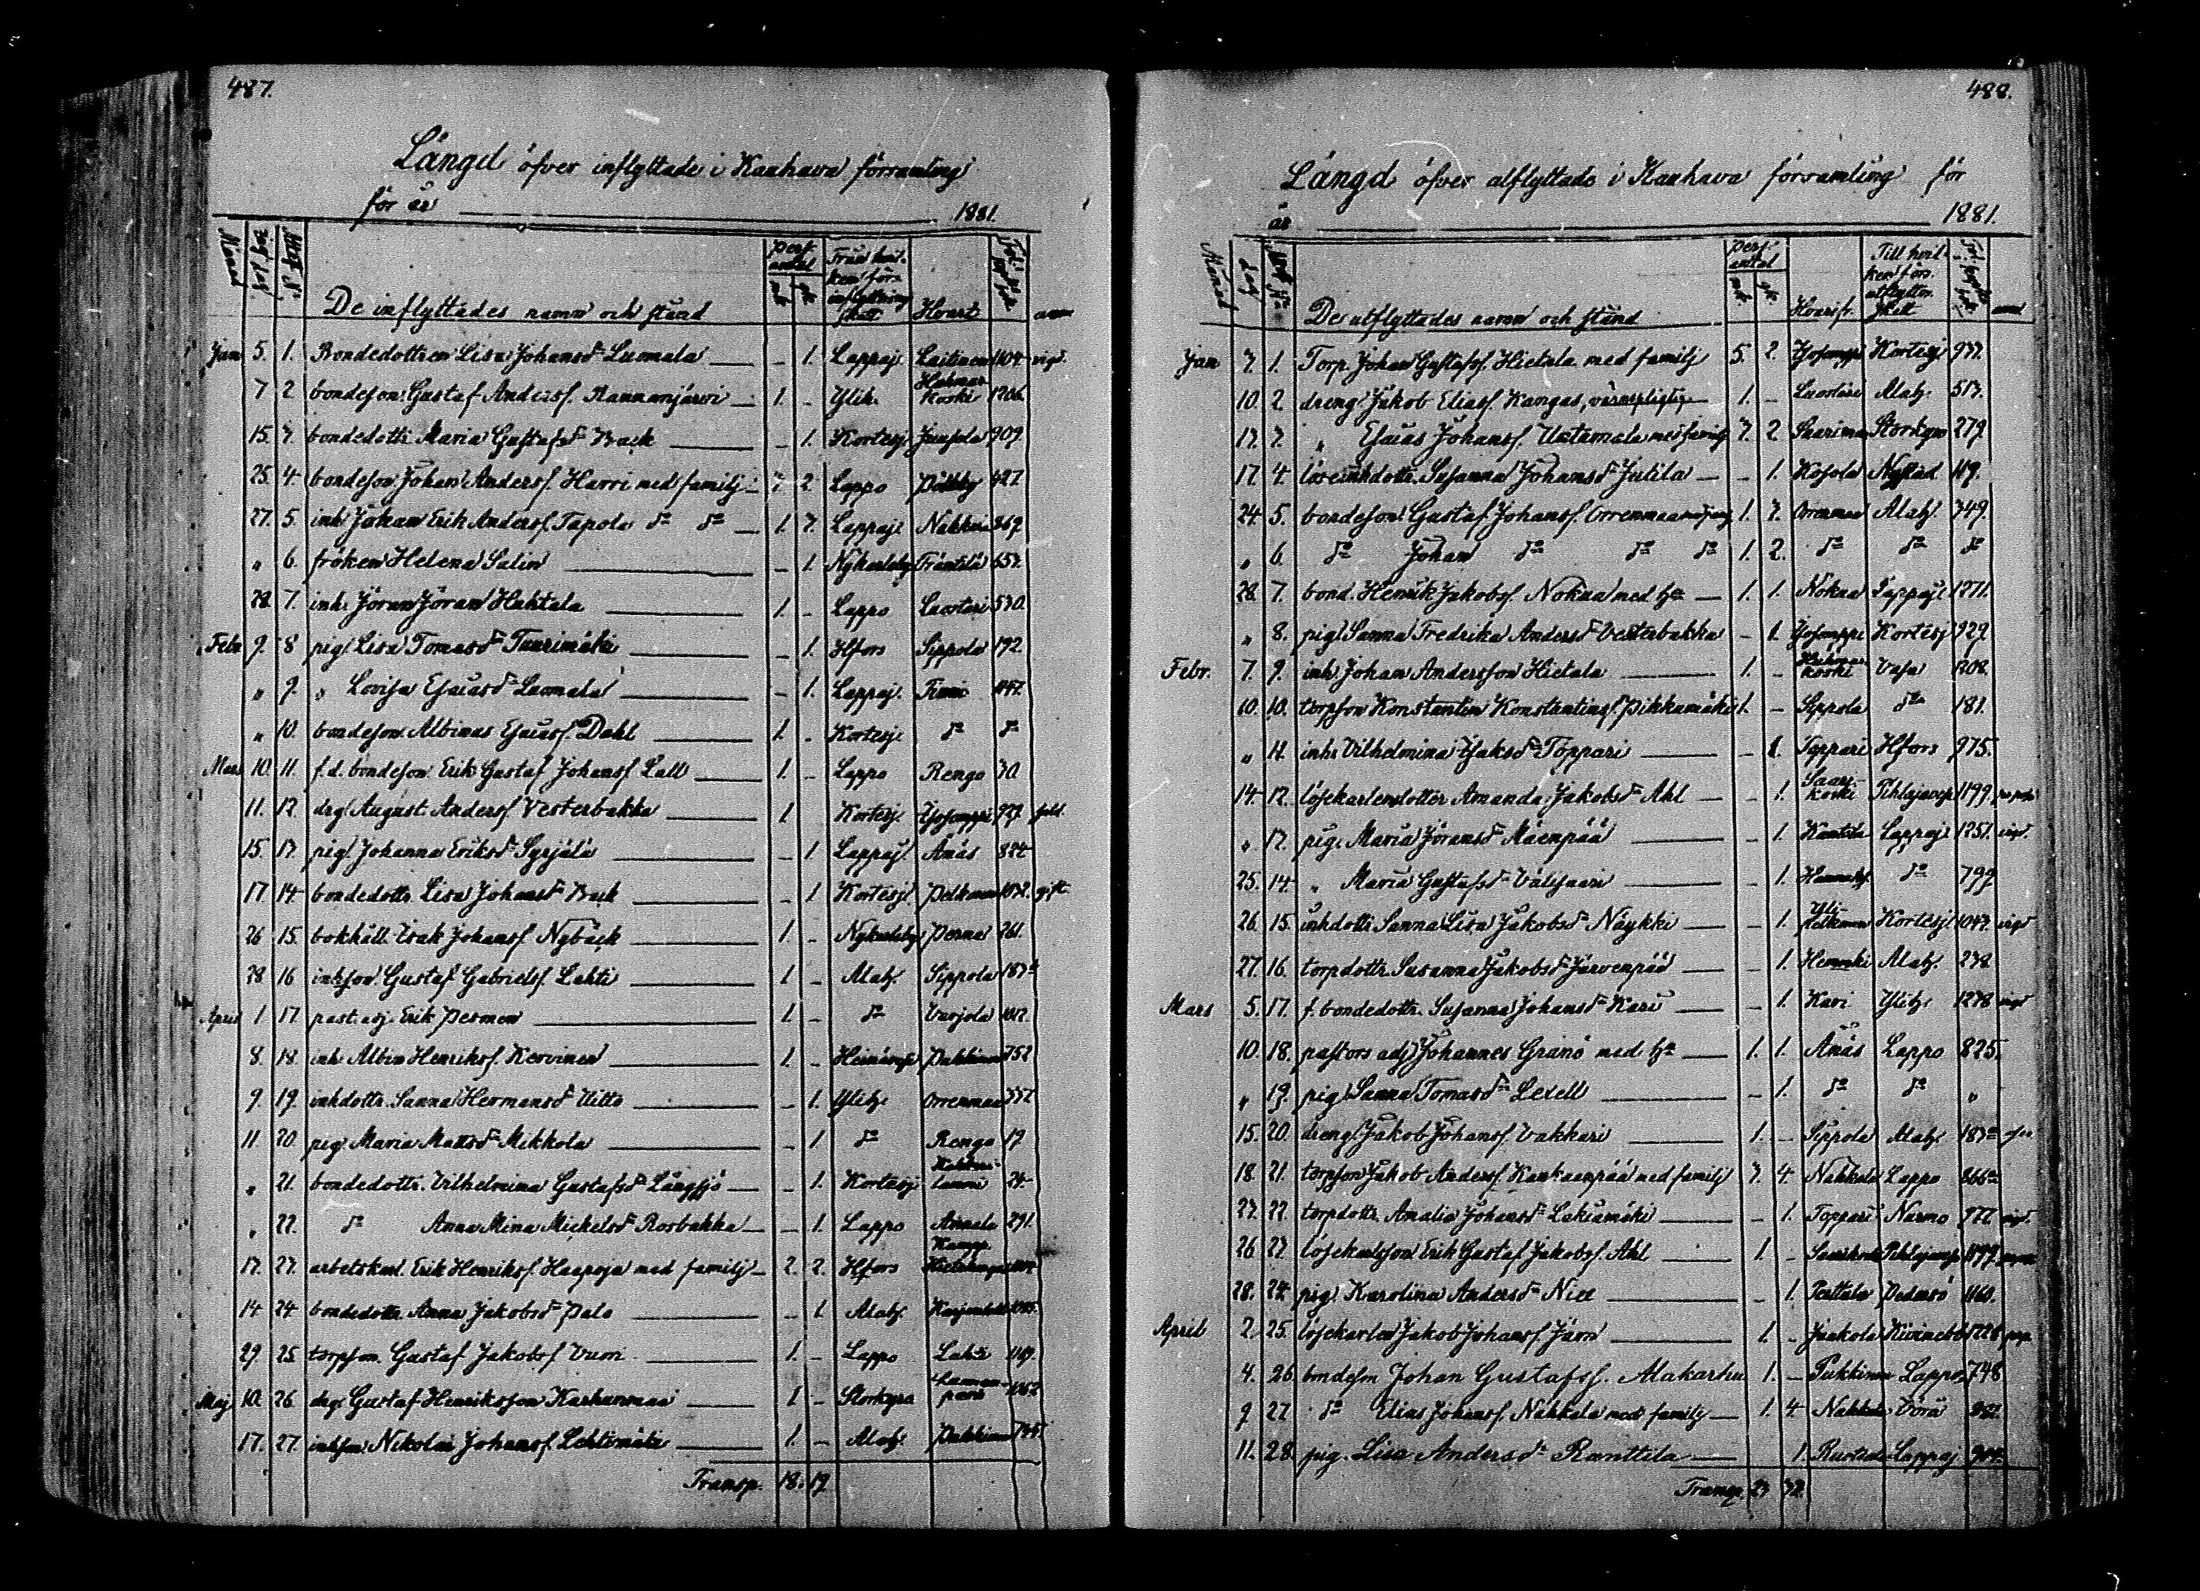 487.
Längd öfver inflyttade i Kauhava församling
för år 1881.
Månad Dag Attest No De inflyttades namn och stånd Pers. antal mk. qk. Från hvilken förs. inflyttning skett Hvart
Jan 5. 1. Bondedottren Lisa Johansdr Luomala — - 1. Lappaj. Laitinen 1104 vigd.
7 2 bondeson Gustaf Andersf. Kannanjärvi — 1. - Ylih. Hakmar koski 1206.
15. 3. bondedottr Maria Gustafsdr Back — - 1. Kortesj. Junjola 909.
25. 4. bondeson Johan Andersf. Harri med familj — 3. 2 Lappo Pöllky 427.
27. 5. inh. Johan Erik Andersf. Tapola do do — 1. 3. Lappaj. Nahkala 869.
" 6. fröken Helena Salin — - 1 Nykarleby Fräntilä 657.
28. 7. inh. Jöran Jöran Huhtala — 1. - Lappo Luoteri 530.
Febr 9. 8 pig. Lisa Tomasdr Tuurimäki — - 1. Hfors Sippola 192.
" 9. " Lovisa Esaiasdr Luomala — - 1. Lappaj. 447.
" 10. bondeson Albinus Esaiasf. Dahl — 1. - Kortesj. do do
Mars 10. 11. f.d. bondeson Erik Gustaf Johansf. Lall — 1. - Lappo Rengo 30.
11. 12. drg. August Andersf. Vesterbakka — 1. Kortesj. Ojosmppi 929.
15. 13. pig. Johanna Eriksdr Syrjälä — - 1. Lappaj. Ånäs 824
17 14. bondedottr. Lisa Johansdr Back — - 1 Kortesj. Pelkonen 1032. gift
26 15. bokhåll. Isak Johansf. Nybäck — 1. - Nykarleby Perna 261.
28 16 inhson Gustaf Gabrielsf. Lahti — 1 - Alah. Sippola 183
April 1 17 past. adj. Erik Perman — 1. - do Varjola 1012.
8. 18. inh. Albin Henriksf. Kervinen — 1. - Pukkinen 752
9. 19. inhdottr. Sanna Hermansdr Uitto — - 1. Ylih. Orrenmaa 357
11 20. pig. Maria Mattsdr Mikkola — - 1 do Rengo 17.
" 21. bondedottr. Vilhelmina Gustafsdr Långsjö — - 1. Kortesj. 24
" 22. do Anna Mina Mickelsdr Rosbakka — - 1. Lappo Annala 291.
12. 23. arbetskarl Erik Henriksf. Haapoja med familj — 2. 2. Hfors
14 24 bondedottr. Anna Jakobsdr Palo — - 1 Alah.
29. 25. torpson Gustaf Jakobsf Vuori — 1. - Lappo Lahti 1109.
Maj 10. 26. drg. Gustaf Henriksson Karhunmaa — 1 - Storkyrö 1062
17. 27. inhson Nikolai Johansf. Lehtimäki — 1. - Alah. Pukkinen 745.
Transp. 18. 17
488.
Längd öfver utflyttade i Kauhava församling för
år 1881.
Månad dag Attest No De utflyttades namn och stånd Pers. antal mk. qk. Hvarifr. Till hvilken förs. utflyttn. skett
Jan 7. 1. Torp. Johan Gustafsf. Hietala med familj 5. 2. Ojosmppi Kortesj 937.
10. 2. dreng Jakob Eliasf. Kangas, värnepligtig — 1. - Luoteri Alah. 513.
13. 3. " Esaias Johansf. Uutamala med familj 3. 2 Saarimaa Storkyro 279.
17. 4. lösinhdottr. Susanna Johansdr Jutila — - 1. Kosola Nystad 119.
24. 5. bondeson Gustaf Johansf. Orrenmaa med fam. 1. 3. Orrenmaa Alah. 349.
" 6. do Johan do do do 1. 2. do do do
28. 7. bond. Henrik Jakobsf. Nokua med h:u — 1. 1. Nokua Lappaj. 1271.
" 8. pig. Sanna Fredrika Andersdr Vesterbakka - 1. Ojosmppi Kortesj 929.
Febr. 7. 9. inh. Johan Andersson Hietala — 1. - Hakmar koski Vasa 1202.
10. 10. torpson Konstantin Konstantinsf. Pihkamäki 1. - Sippola do 181.
" 11. inh. Vilhelmina Isaksdr Toppari — - 1. Toppari Hfors 975.
14. 12. löskarlsdotter Amanda Jakobsdr Ahl — - 1. Saari koski Pihlajaves 1199.
" 13. pig. Maria Jöransdr Mäenpää — - 1. Kantola Lappaj. 1251. vigd.
25. 14. " Maria Gustafsdr Välisaari — - 1. do 799
26. 15. inhdottr Sanna Lisa Jakobsdr Näykki — - 1. Yli-pelkonen Kortesj 1043. vigd
27. 16. torpdottr Susanna Jakobsdr Järvenpää — - 1. Alah. 238.
Mars 5. 17. f. bondedottr. Susanna Johansdr Kari — - 1. Kari Ylih. 1278 vigd
10. 18. pastors adj. Johannes Granö med h:u — 1. 1. Ånäs Lappo 825.
" 19. pig. Sanna Tomasdr Lexell — - 1. do do "
15. 20. dreng Jakob Johansf. Vakkari — 1. - Sippola Alah. 183
18. 21. torpson Jakob Andersf. Kankaanpää med familj 3. 4. Nahkala Lappo 866
23. 22. torpdottr. Amalia Johansdr Lakiamäki — - 1. Toppari Nurmo 977 vigd.
26 23. löskarlson Erik Gustaf Jakobsf. Ahl — 1. - Saarikoski Pihlajaves 1199.
28. 24. pig. Karolina Andersdr Nice — - 1. Perttula Pedersö 1160.
April 2. 25. löskarlen Jakob Johansf. Järn — 1. - Jaakola Kivinebb 1226
4. 26. bondeson Johan Gustafsf. Alakarhu 1. - Pukkinen Lappo 748
9 27. do Elias Johansf. Nahkala med familj — 1. 4 Nahkala Vörå 862.
11. 28. pig. Lisa Andersdr Ranttila — 1. Lappaj 904.
Transp. 23 32.